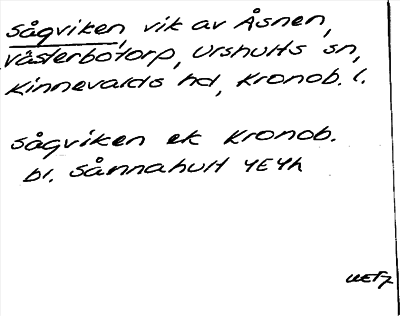 Sågviken, vik av Åsnen,
Västerbotorp, Urshults sn,
Kinnevalds hd, Kronob. l.
Sågviken ek Kronob.
bl. Sånnahult 4E4h